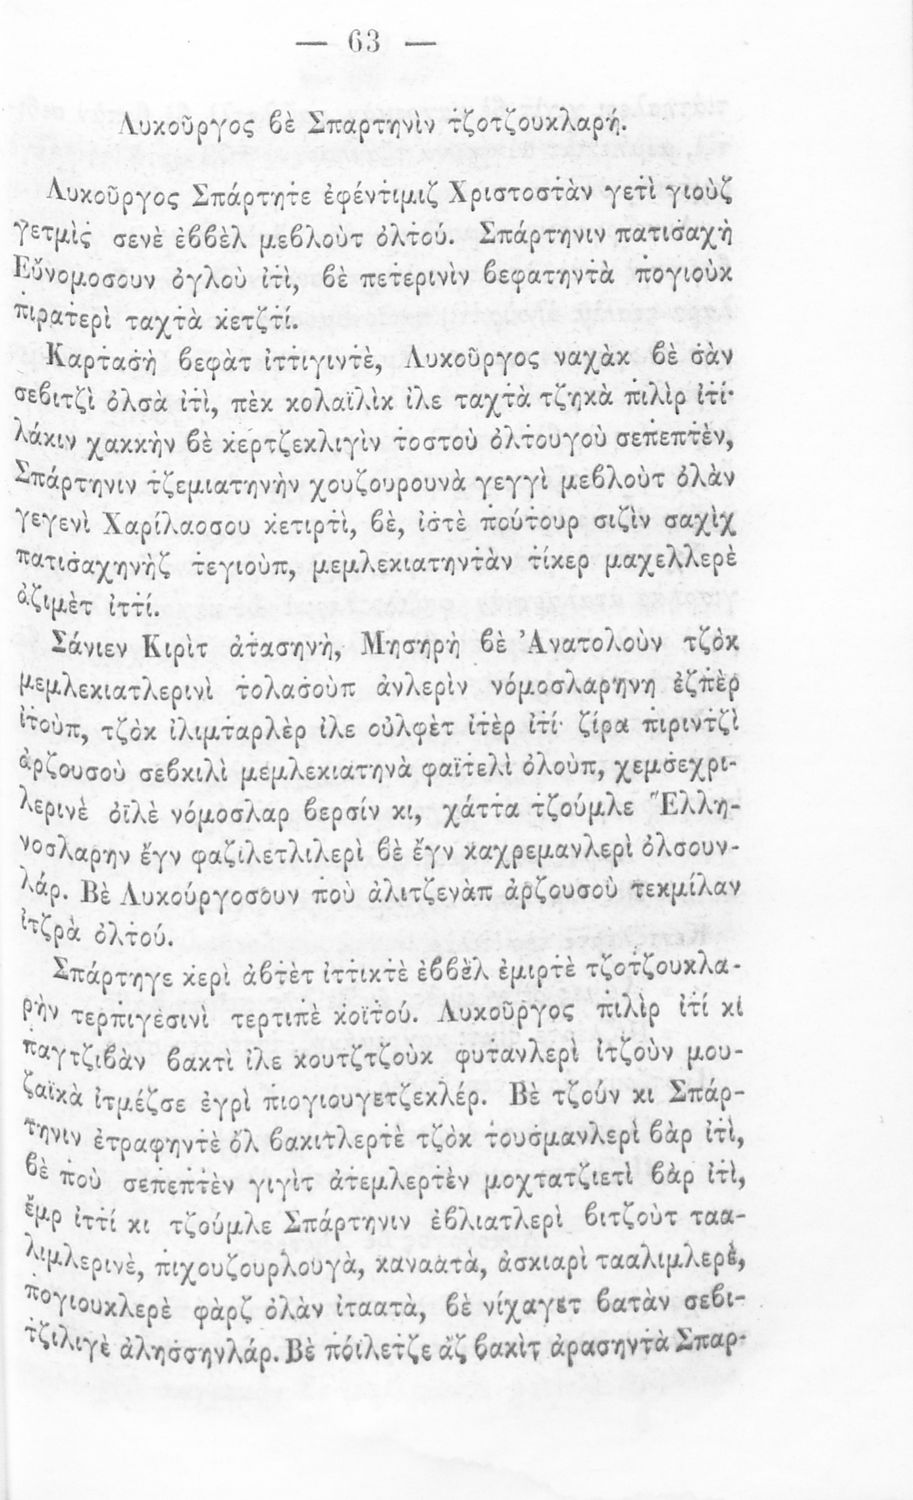 — 63 —
Λυκοῦργος βὲ Σπαρτηνὶν τ̇ζοτζουκλαρή.
Λυκοῦργος Σπάρτητε ἐφέντιμιζ Χριστοστὰν γετὶ γιοὺζ
γετμὶς̇ σενὲ ἐββὲλ μεβλοὺτ ὀλτού. Σπάρτηνιν πατισ̇αχὴ
Εὔνομοσουν ὀγλοὺ ἰτὶ, βὲ πετερινὶν βεφατηντὰ π̇ογιοὺκ
π̇ιρατερὶ ταχτὰ κετζτί.
Καρτασ̇ὴ βεφὰτ ἰττιγιντὲ, Λυκοῦργος ναχὰκ βὲ σ̇ὰν
σεβιτζὶ ὀλσὰ ἰτὶ, πὲκ κολαϊλὶκ ἰλε ταχτὰ τζηκὰ π̇ιλὶρ ἰτί·
λάκιν χακκὴν βὲ κερτζεκλιγὶν τ̇οστοὺ ὀλτουγοὺ σεπ̇επτὲν,
Σπάρτηνιν τ̇ζεμιατηνὴν χουζουρουνὰ γεγγὶ μεβλοὺτ ὀλὰν
γεγενὶ Χαρίλαοσου κετιρτὶ, βὲ, ἰσ̇τὲ π̇ούτουρ σιζὶν σαχὶχ
πατισ̇αχηνὴζ τ̇εγιοὺπ, μεμλεκιατηντὰν τ̇ίκερ μαχελλερὲ
ἀζιμὲτ ἰττί.
Σάνιεν Κιρὶτ ἀτασηνὴ, Μησηρὴ βὲ Ἀνατολοὺν τζὸκ
μεμλεκιατλερινὶ τ̇ολασ̇οὺπ ἀνλερὶν νόμοσλαρηνη ἐζπ̇ὲρ
ἰτοὺπ, τζὸκ ἰλιμταρλὲρ ἰλε οὐλφὲτ ἰτὲρ ἰτί· ζίρα π̇ιριντζὶ
ἀρζουσοὺ σεβκιλὶ μεμλεκιατηνὰ φαϊτελὶ ὀλοὺπ, χεμσεχρι-
λερινὲ ὀϊλὲ νόμοσλαρ βερσίν κι, χάττα τ̇ζούμλε Ἕλλη-
νοσλαρην ἔγν φαζιλετλιλερὶ βὲ ἔγν καχρεμανλερὶ ὀλσουν-
λάρ. Βὲ Λυκούργοσουν π̇οὺ ἀλιτζενὰπ ἀρζουσοὺ τεκμίλαν
ἰτζρὰ ὀλτού.
Σπάρτηγε κερὶ ἀβτὲτ ἰττικτὲ ἐββὲλ ἐμιρτὲ τζοτζουκλα-
ρὴν τερπιγέσινὶ τερτιπὲ κοϊτού. Λυκοῦργος π̇ιλὶρ ἰτί κι
π̇αγτζιβὰν βακτὶ ἰλε κουτζτζοὺκ φυτανλερὶ ἰτζοὺν μου-
ζαϊκὰ ἰτμέζσε ἐγρὶ π̇ιογιουγετζεκλέρ. Βὲ τζούν κι Σπάρ-
τηνιν ἐτραφηντὲ ὀλ βακιτλερτὲ τζὸκ τ̇ουσ̇μανλερὶ βὰρ ἰτὶ,
βὲ π̇οὺ σεπ̇επτὲν γιγὶτ ἀτεμλερτὲν μοχτατζιετὶ βὰρ ἰτὶ,
ἔμρ ἰττί κι τ̇ζούμλε Σπάρτηνιν ἐβλιατλερὶ βιτζοὺτ ταα-
λιμλερινὲ, πιχουζουρλουγὰ, καναατὰ, ἀσκιαρὶ τααλιμλερὲ,
π̇ογιουκλερὲ φὰρζ ὀλὰν ἰταατὰ, βὲ νίχαγετ βατὰν σεβι-
τζιλιγὲ ἀλησ̇σηνλάρ. Βὲ π̇όιλετζε ἀζ βακὶτ ἀρασηντὰ Σπαρ-